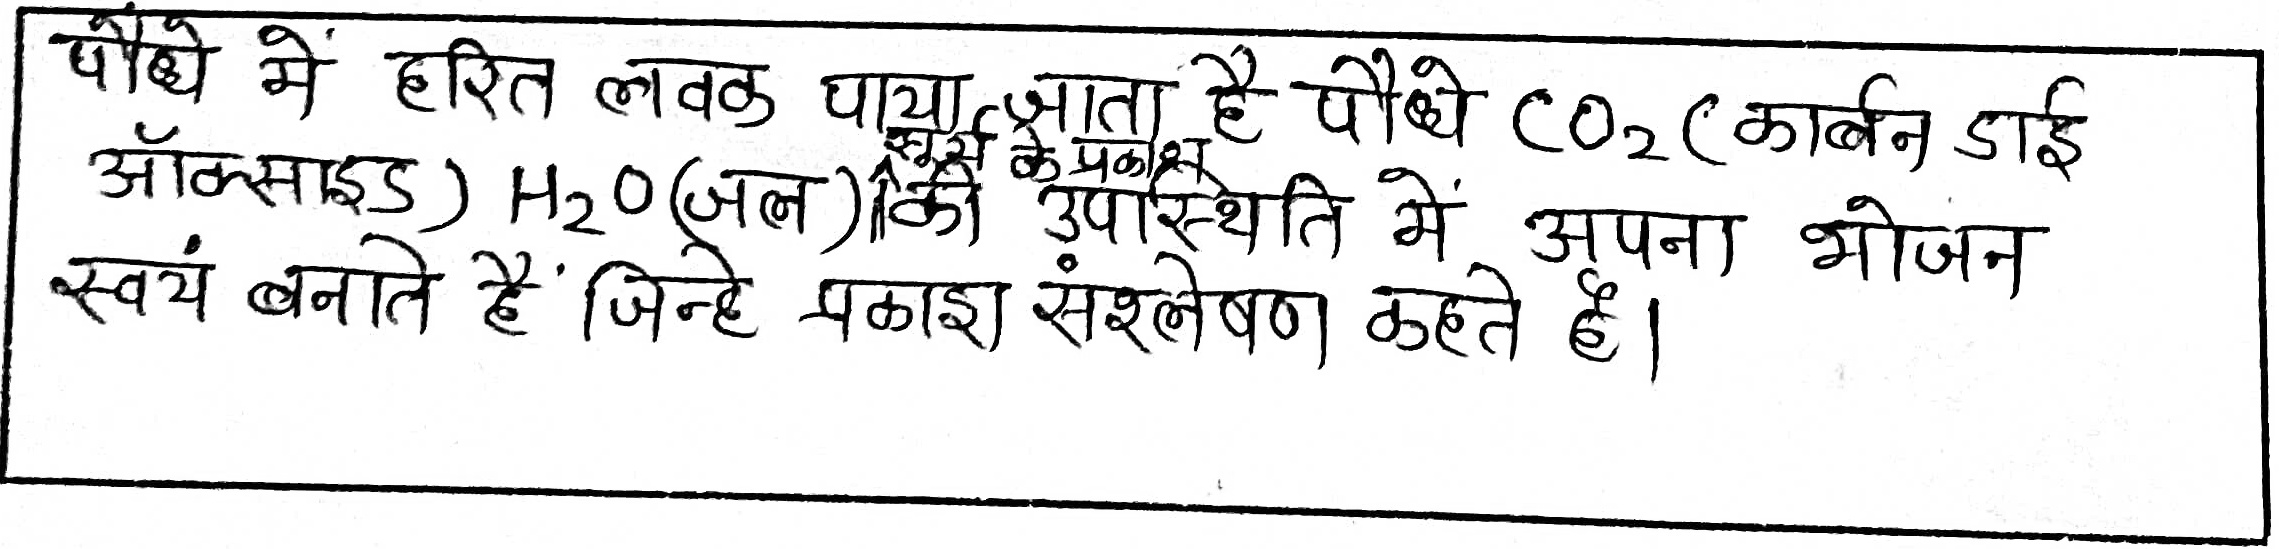 पौधे में हरित लवक पाया जाता है पौधे CO₂ (कार्बन डाई
ऑक्साइड) H₂O (जल) सूर्य के प्रकाश की उपस्थिति में अपना भोजन
स्वयं बनाते हैं जिन्हे प्रकाश संश्लेषण कहते है।